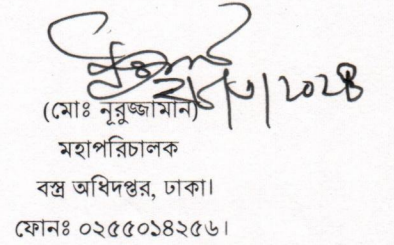 (মোঃ নূরুজ্জামান)
মহাপরিচালক
বস্ত্র অধিদপ্তর, ঢাকা।
ফোনঃ ০২৫৫০১৪২৫৬।